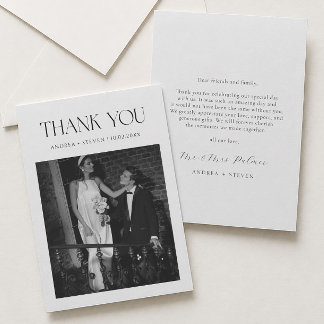 THANK YOU
ANDREA + STEVEN | 10.02.20XX
Dear friends and family,
Thank you for celebrating our special day
with us. It was such an amazing day and
it would not have been the same without you.
We greatly appreciate your love, support, and
generous gifts. We will forever cherish
the memories we made together.
All our love,
Mr. & Mrs. Palmer
ANDREA + STEVEN